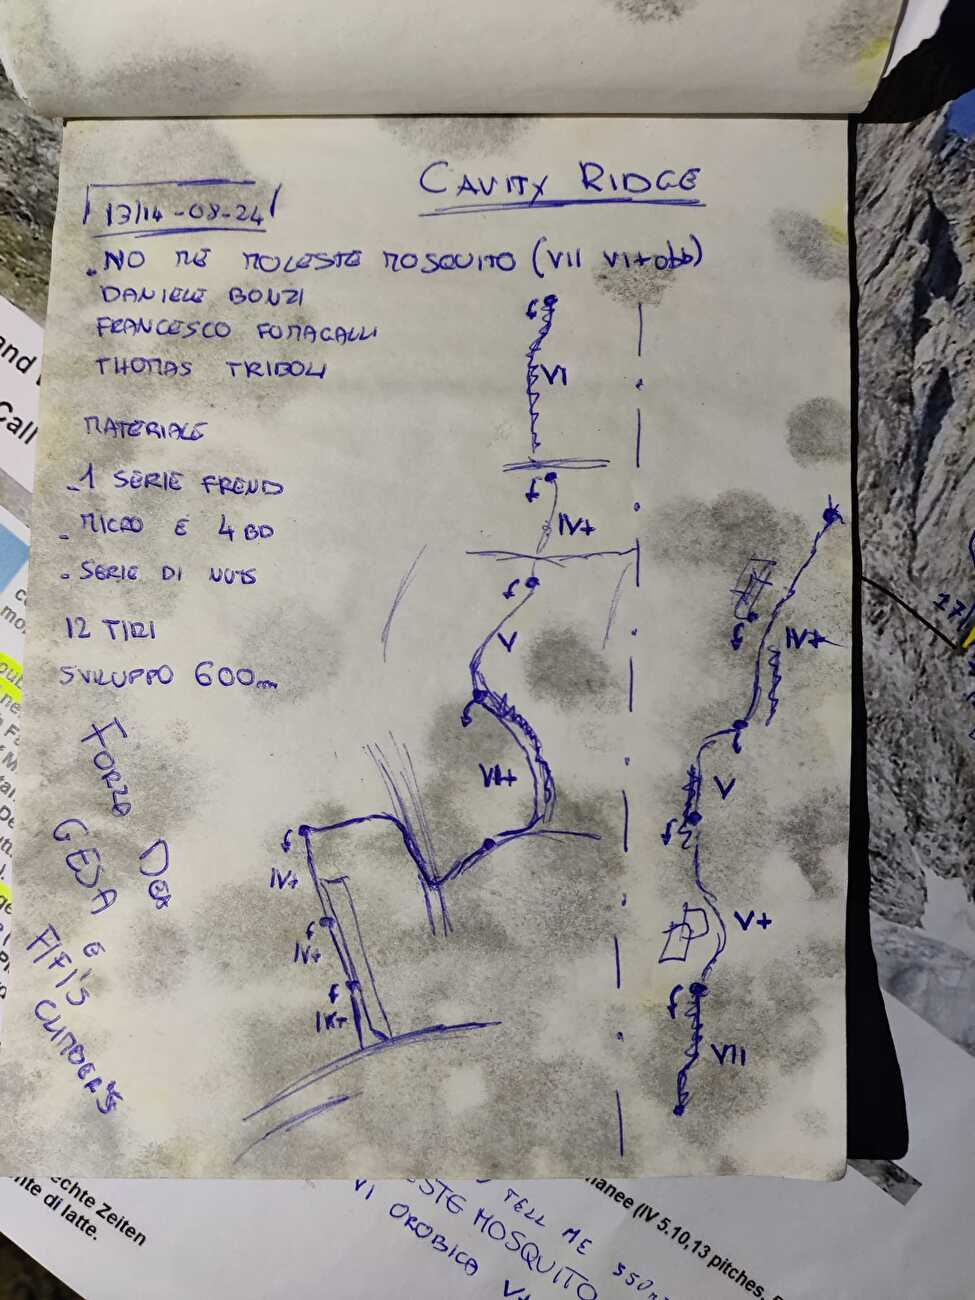 CAVITY RIDGE
13/14-08-24
.NO ME MOLESTE MOSQUITO (VII VI+obb)
DANIELE BONZI
FRANCESCO FUMAGALLI
THOMAS TRIBOLI
MATERIALE
-1 SERIE FREND
- MICRO E 4 BD
- SERIE DI NUTS
12 TIRI
SVILUPPO 600m
FORZO DEA
GESA E
FIFI'S
CLIMBER'S
VI
IV+
V
VI+
IV+
IV+
IV+
IV+
V
V+
VII
and
Call
17/
echte Zeiten
nte di latte.
TELL ME 550m
ESTE MOSQUITO
VI OROBICA V+
manee (IV 5.10,13 pitches,